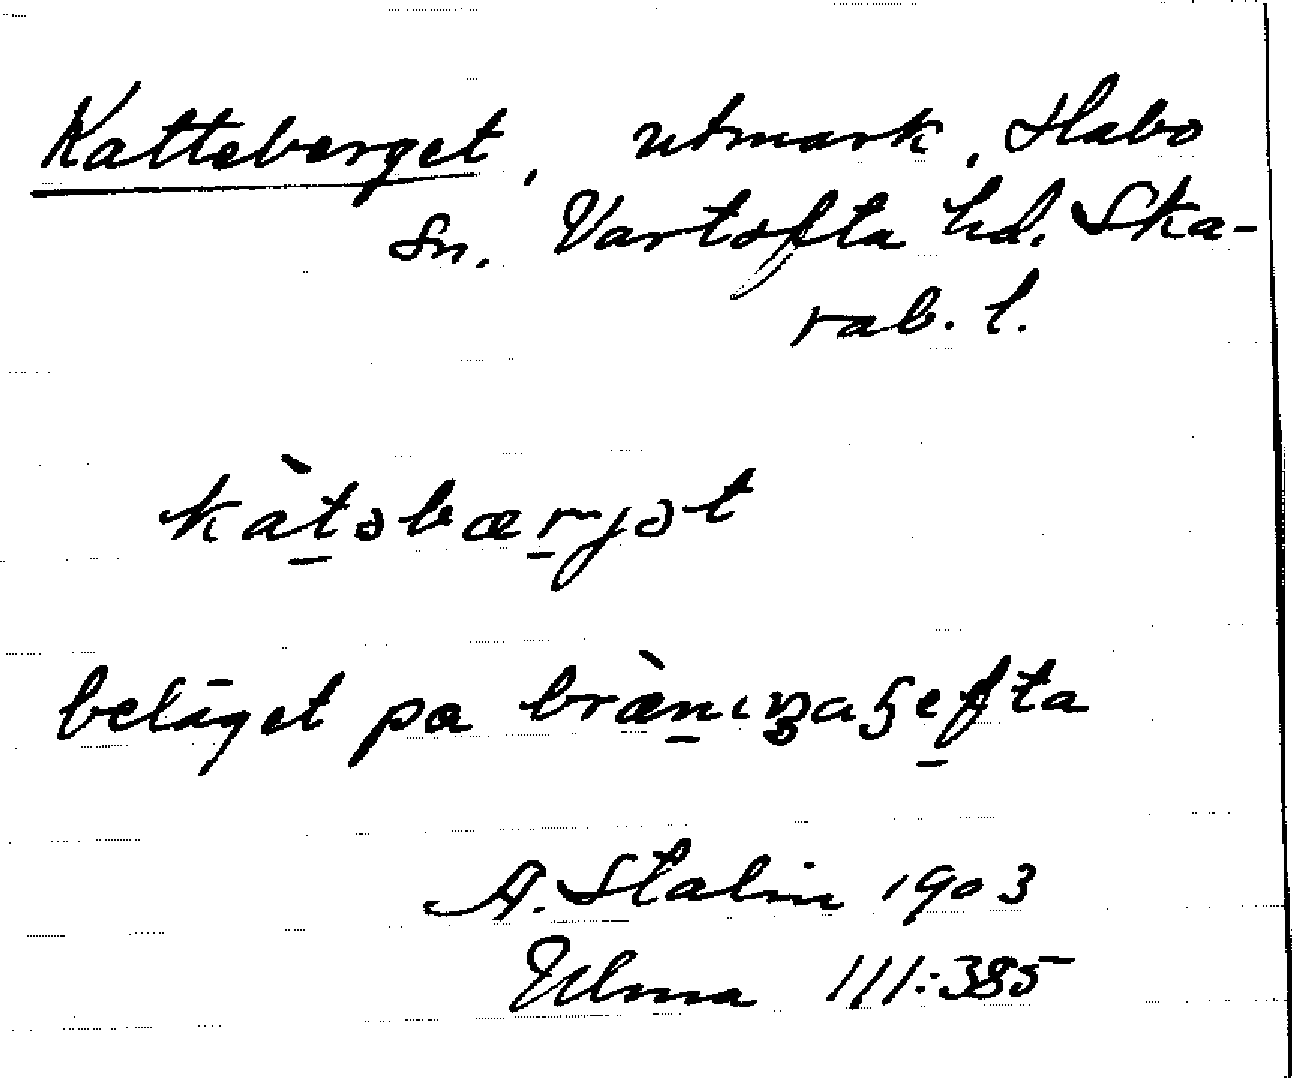 Katteberget, utmark, Habo
sn. Vartofta hd. Ska-
rab. l.
kàt̲əbær̲jət
beläget på bræ̀n̲ıŋaʂe̲fta
A. Stalin 1903
Ulma 111:385